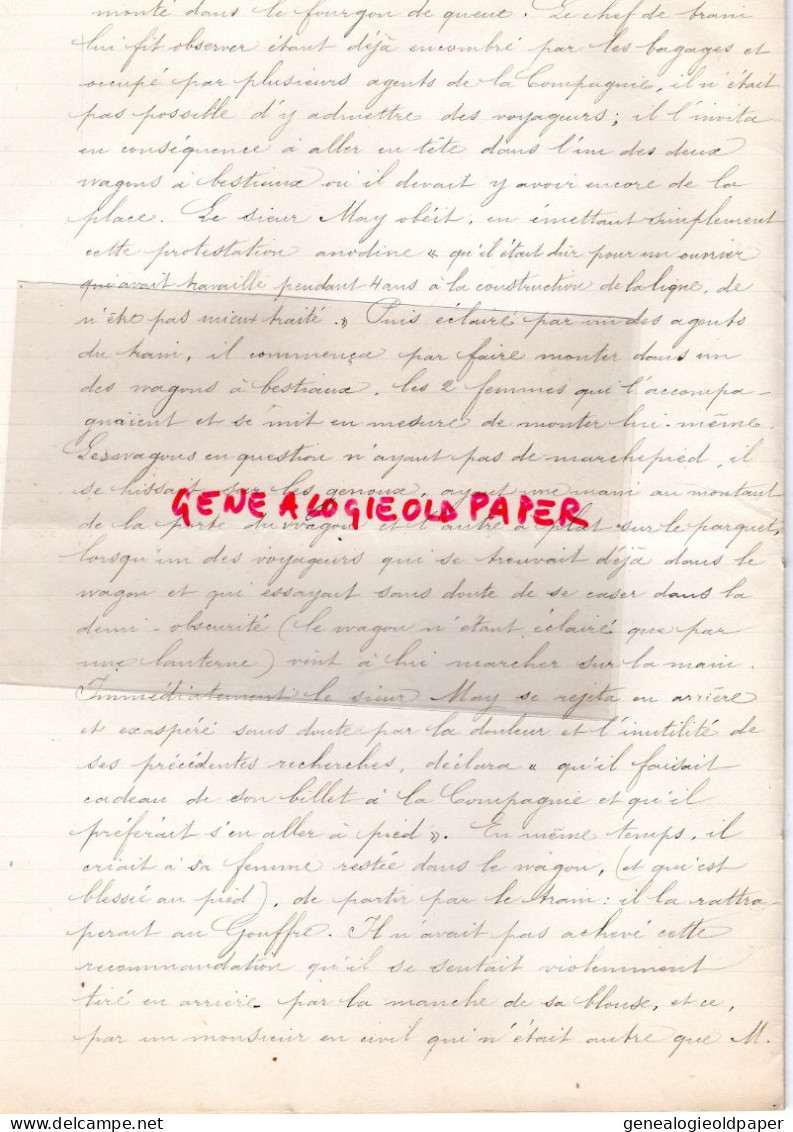 monté dans le fourgon de queue. Le chef de train
lui fit observer étant déjà encombré par les bagages et
occupé par plusieurs agents de la Compagnie, il n'était
pas possible d'y admettre des voyageurs ; il l'invita
en conséquence à aller en tête dans l'un des deux
wagons à bestiaux où il devait y avoir encore de la
place. Le sieur May obéit, en émettant simplement
cette protestation anodine « qu'il était dur pour un ouvrier
qui avait travaillé pendant 4 ans à la construction de la ligne, de
n'être pas mieux traité ». Puis éclairé par un des agents
du train, il commença par faire monter dans un
des wagons à bestiaux, les 2 femmes qui l'accompa-
gnaient et se mit en mesure de monter lui-même.
Les wagons en question n'ayant pas de marchepied, il
se hissait sur les genoux, ayant une main au montant
GENEALOGIEOLDPAPER
de la porte du wagon et l'autre à plat sur le parquet,
lorsqu'un des voyageurs qui se trouvait déjà dans le
wagon et qui essayait sans doute de se caser dans la
demi-obscurité (le wagon n'étant éclairé que par
une lanterne) vint à lui marcher sur la main.
Immédiatement le sieur May se rejeta en arrière
et exaspéré sans doute par la douleur et l'inutilité de
ses précédentes recherches, déclara « qu'il faisait
cadeau de son billet à la Compagnie et qu'il
préférait s'en aller à pied ». En même temps, il
criait à sa femme restée dans le wagon, (et qui est
blessée au pied), de partir par le train : il la rattra-
perait au Gouffre. Il n'avait pas achevé cette
recommandation qu'il se sentait violemment
tiré en arrière par la manche de sa blouse, et ce,
par un monsieur en civil qui n'était autre que M.
genealogieoldpaper